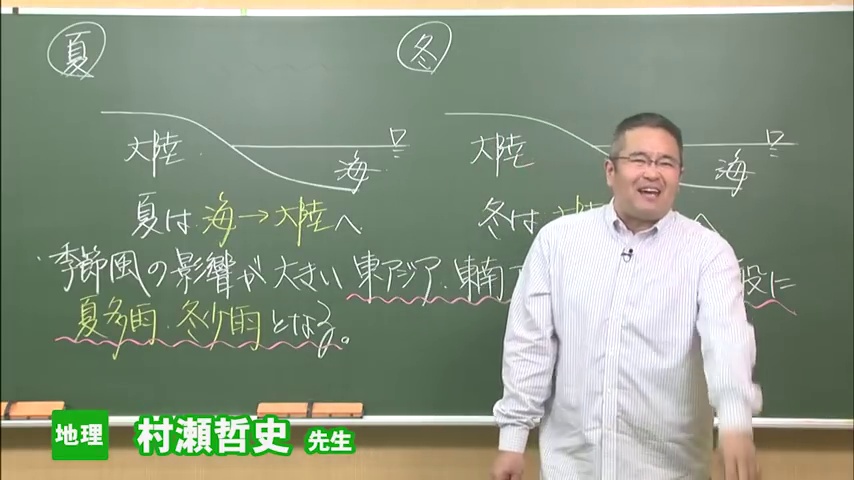 夏
冬
大陸
海
大陸
海
夏は 海→大陸へ
冬は 大陸 へ
・季節風の影響が大きい東アジア・東南ア 般に
夏多雨・冬少雨となる。
地理 村瀬哲史 先生